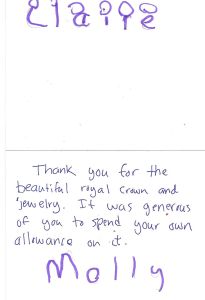 Thank you for the
beautiful royal crown and
jewelry. It was generous
of you to spend your own
allowance on it.
Molly